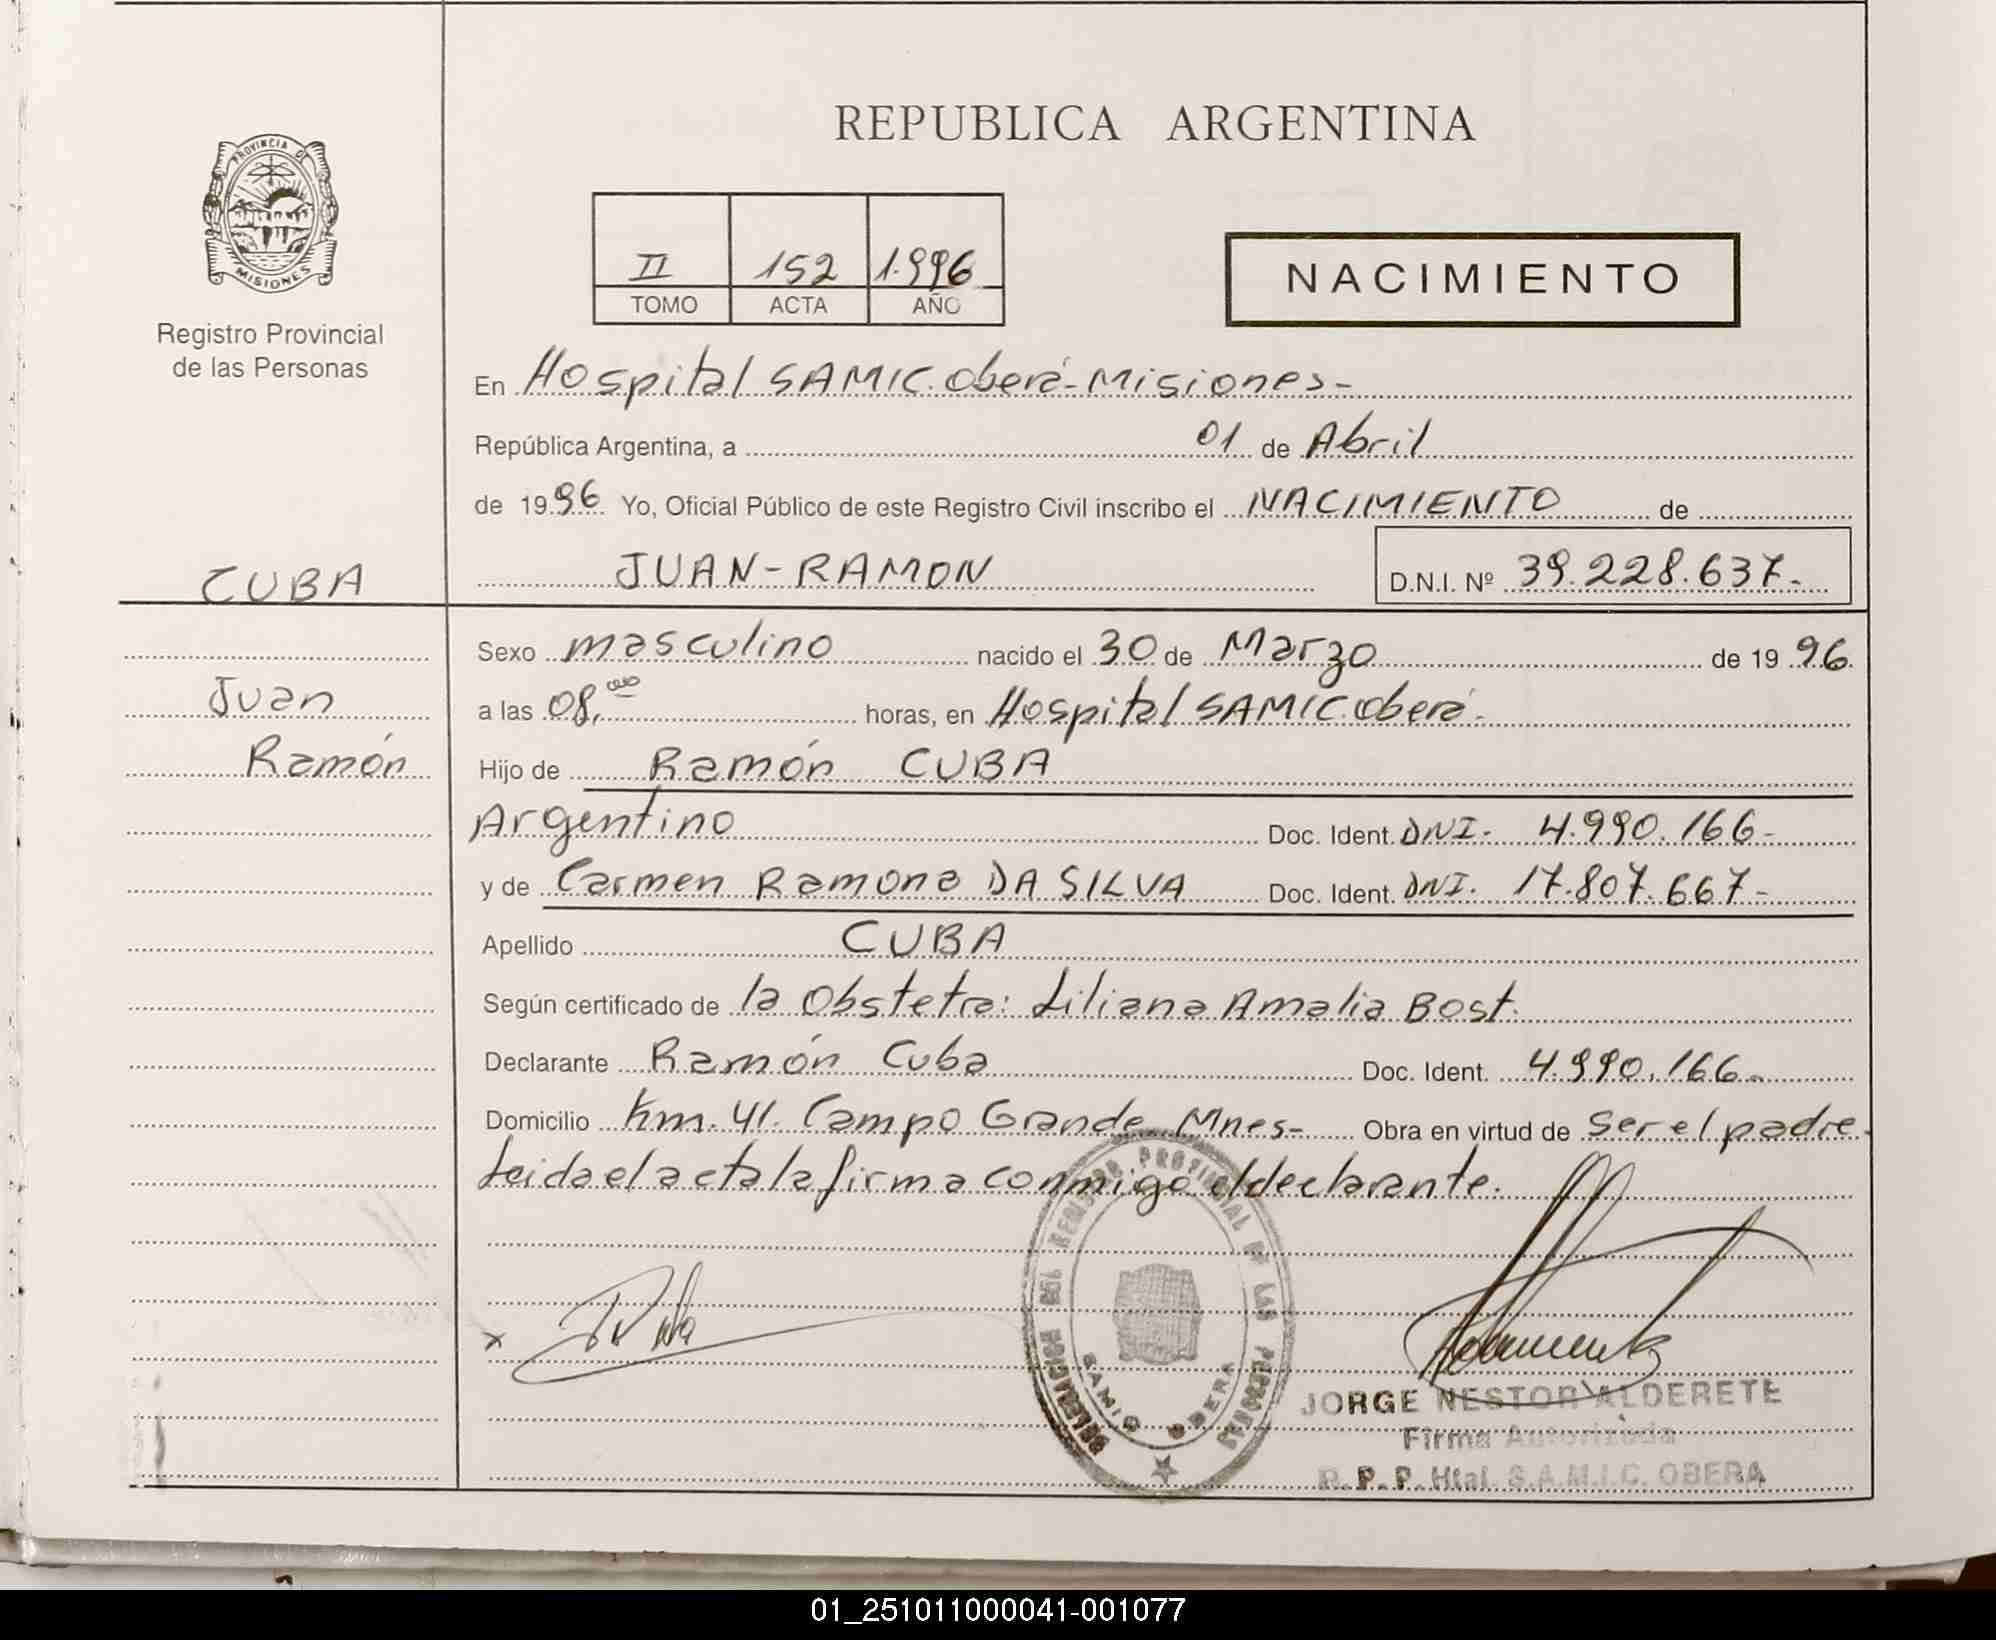 REPUBLICA ARGENTINA
PROVINCIA DE
MISIONES
Registro Provincial
de las Personas
II 152 1.996
TOMO ACTA AÑO
NACIMIENTO
En Hospital SAMIC. Oberá - Misiones -
República Argentina, a 01 de Abril
de 1996 Yo, Oficial Público de este Registro Civil inscribo el NACIMIENTO de
CUBA JUAN - RAMON D.N.I. Nº 39.228.637.-
Sexo masculino nacido el 30 de Marzo de 19 96.
Juan a las 08,ºº horas, en Hospital SAMIC. Oberá -
Ramón Hijo de Ramón CUBA
Argentino Doc. Ident. DNI. 4.990.166 -
y de Carmen Ramona DA SILVA Doc. Ident. DNI. 17.807.667 -
Apellido CUBA
Según certificado de la Obstetra: Liliana Amalia Bost.
Declarante Ramón Cuba Doc. Ident. 4.990.166 -
Domicilio Km. 41. Campo Grande Mnes - Obra en virtud de ser el padre.
Leida el acta la firma conmigo el declarante.
x
DELEGACION DEL REGISTRO PROVINCIAL DE LAS PERSONAS
SAMIC OBERA
JORGE NESTOR ALDERETE
Firma Autorizada
R. P. P. Htal. S.A.M.I.C. OBERA
01_251011000041-001077